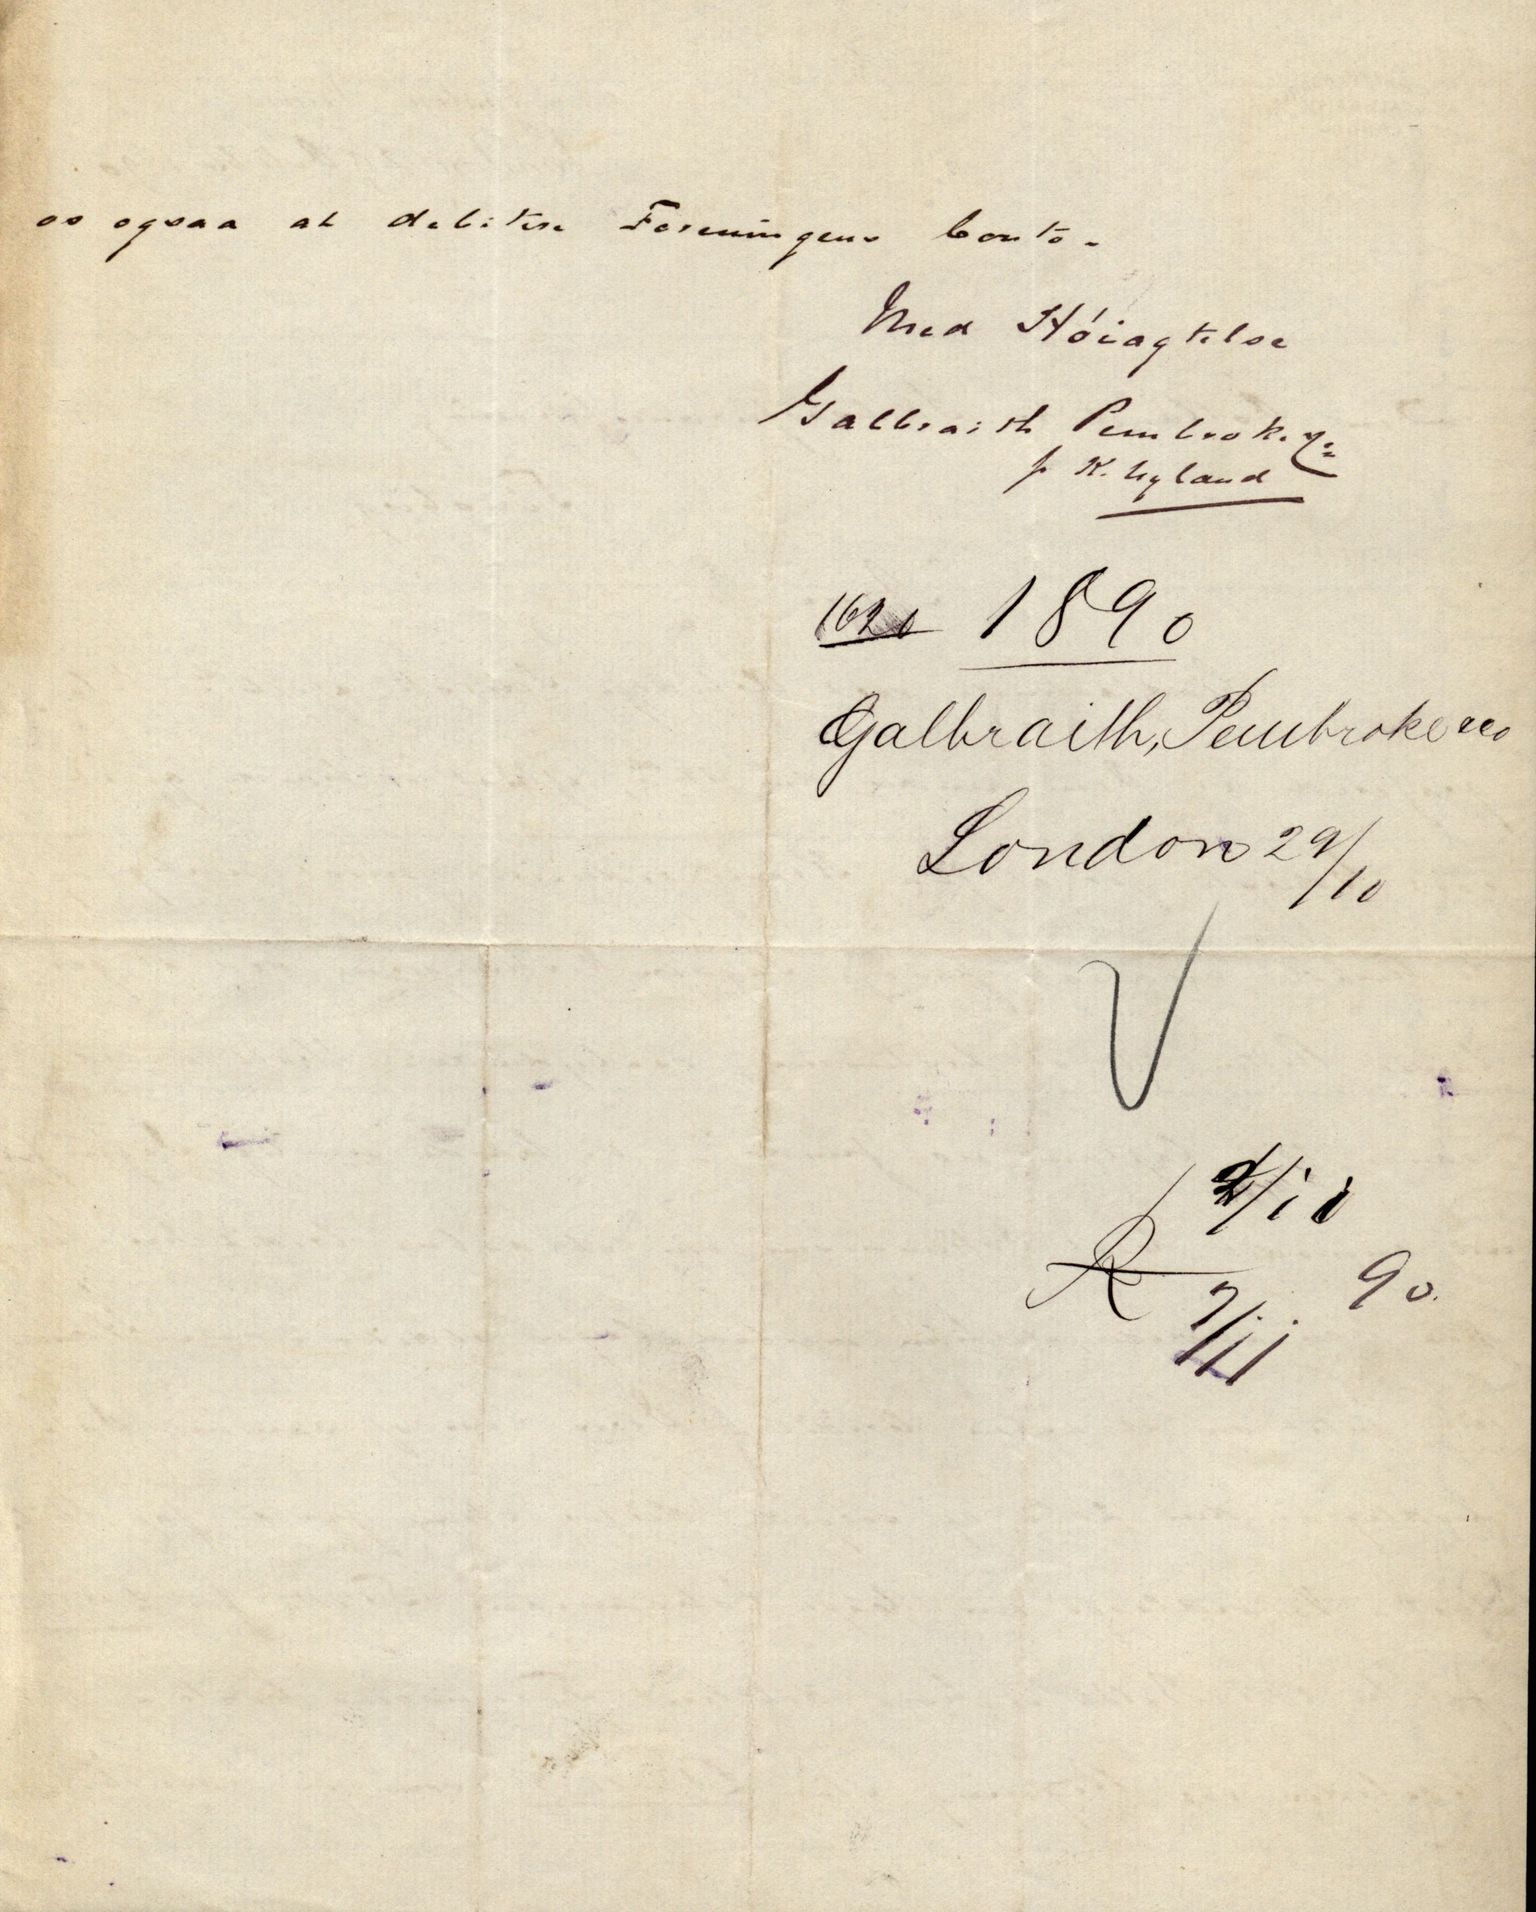 os ogsaa at debitere Foreningens Conto.
Med Høiagtelse
Galbraith Pembroke
p K. Nyland
1890
Galbraith, Pembroke & Co
London 29/10
R 7/11 90.